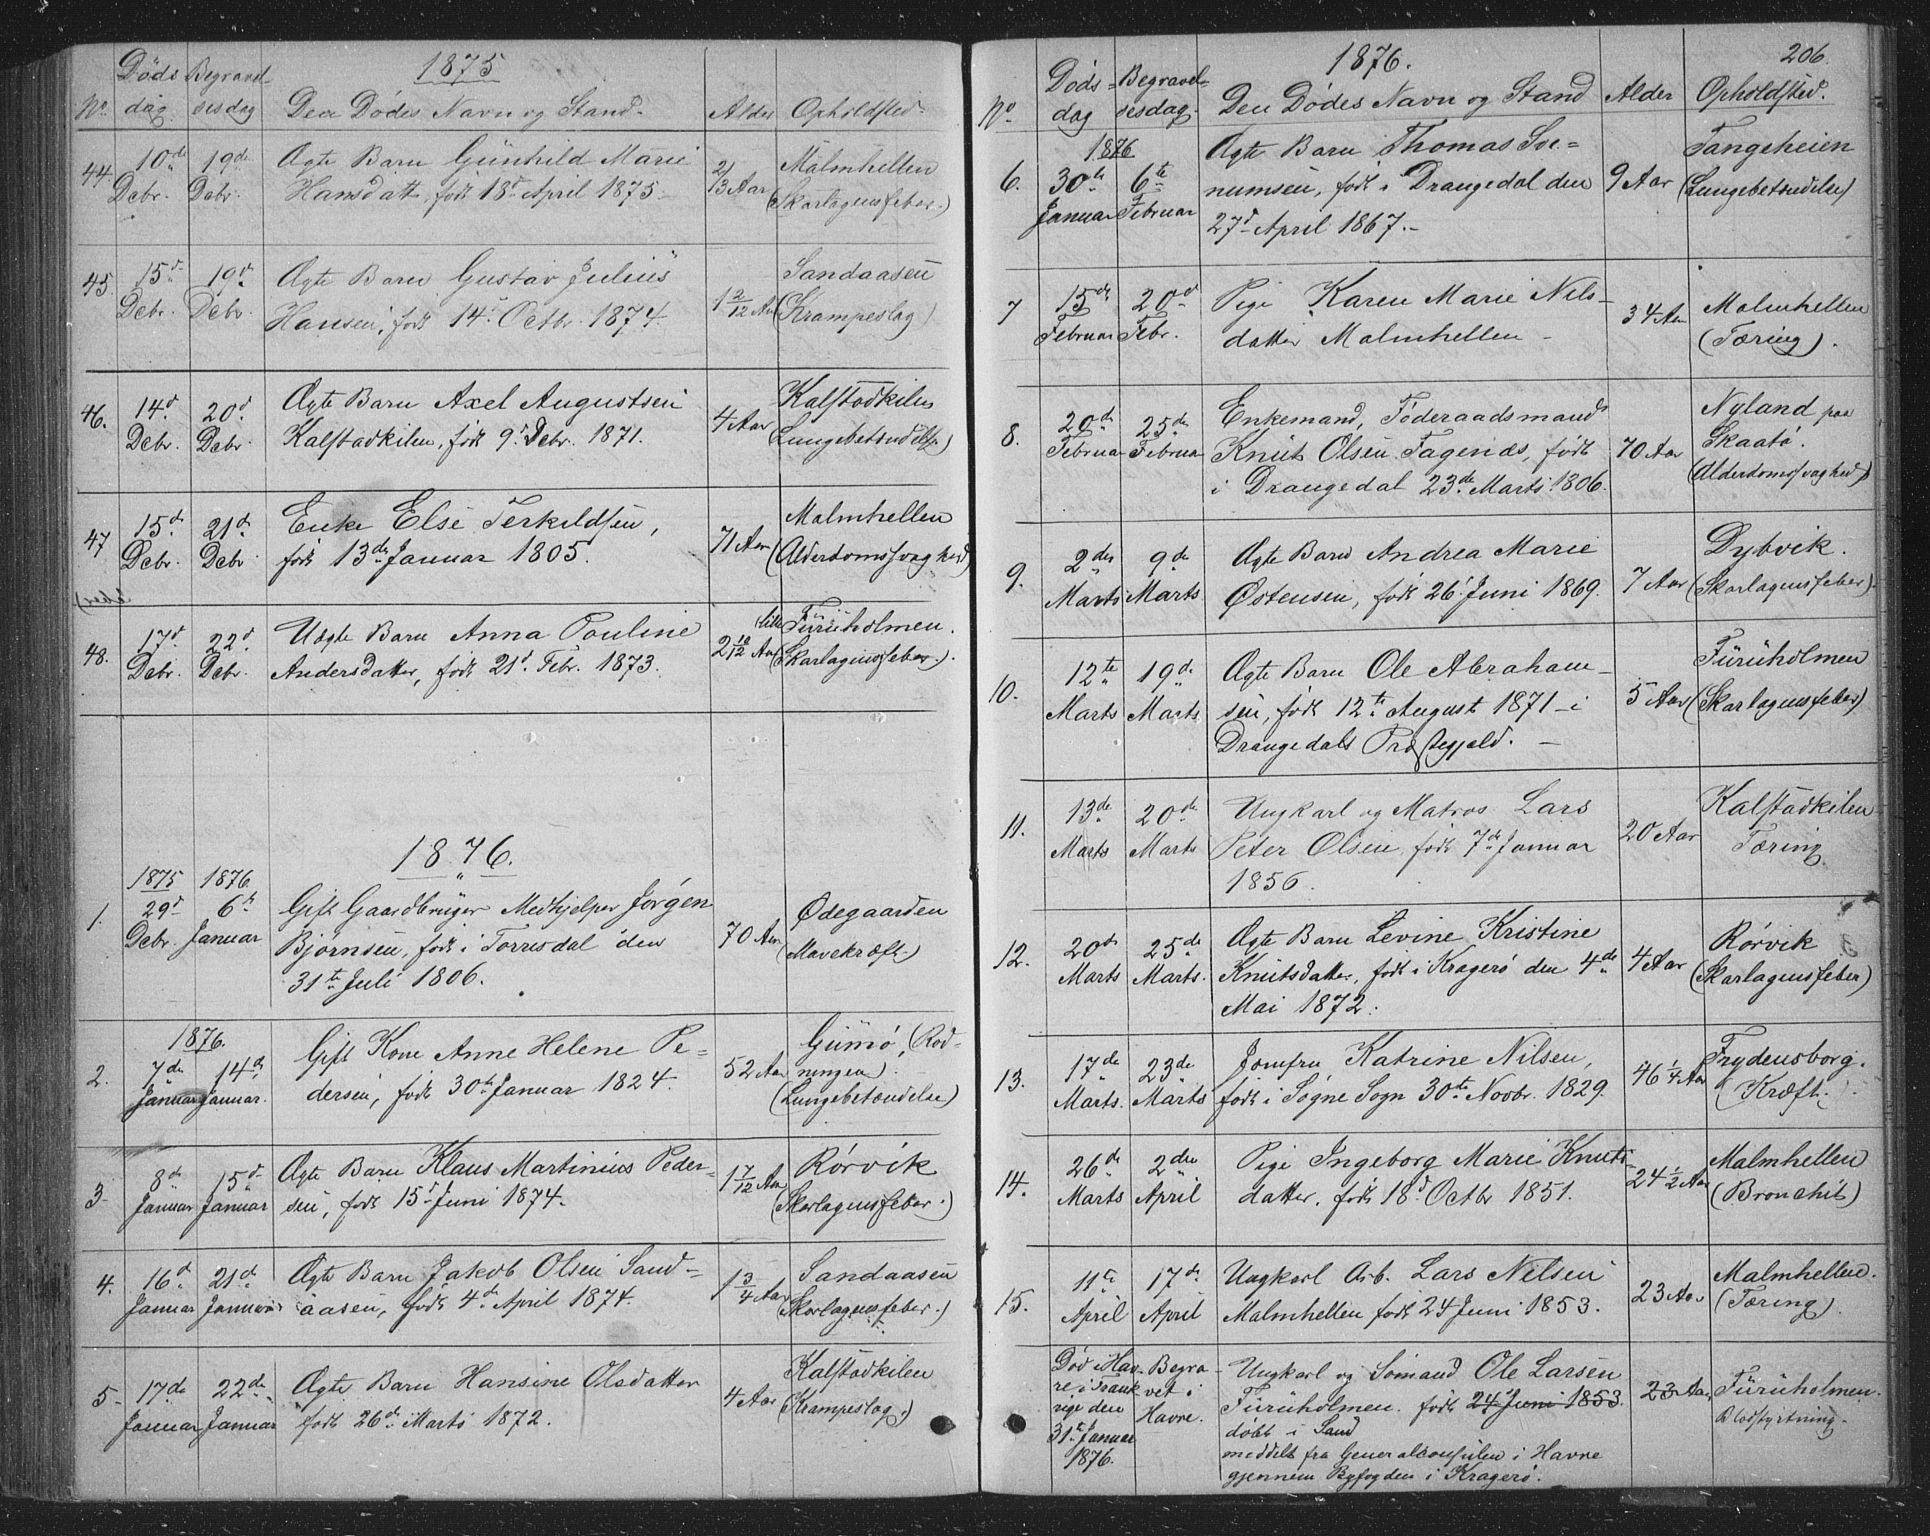 1875
No. Døds dag. Begravelsesdag Den Dødes Navn og Stand. Alder Opholdsted.
44. 10de 19de Ægte Barn Gunhild Marie 2/3 Aar Malmhellen
Debr. Debr. Hansdatt, født 18d April 1875 (Skarlagensfeber.)
45. 15d 19d Ægte Barn Gustav Julius 1 2/12 Aar Sandaasen
Debr. Debr. Hansen, født 14d Octbr. 1874 (Krampeslag)
46. 14d 20d Ægte Barn Axel Augustsen 4 Aar Kalstadkilen
Debr. Debr. Kalstadkilen, født 9d Debr. 1871. (Lungebetændelse)
47 15d 21d Enke Else Terkildsen, 71 Aar Malmhellen
Debr. Debr født 13de Januar 1805. (Alderdomssvaghed)
48. 17d 22d Uægte Barn Anna Pauline 2 10/12 Aar lille Furuholmen.
Debr. Debr. Andersdatter, født 21d Febr. 1873. (Skarlagensfeber.).
1876.
1875 1876
1. 29d 6te Gift Gaardbruger Medhjelper Jørgen 70 Aar Ødegaarden
Debr. Januar Bjørnsen, født i Torrisdal den (Mavekræft.)
31te Juli 1806.
1876.
2. 7de 14de Gift Kone Anne Helene Pe= 52 Aar Gumø, (Rød-
Januar Januar. dersen, født 30te Januar 1824. ningen).
(Lungebetændelse)
3. 8de 15d Ægte Barn Klaus Martinius Peder- 17/12 Aar Rørvik
Januar Januar sen, født 15d Juni 1874. (Skarlagensfeber.)
4. 16d 21d Ægte Barn Jakob Olsen Sand= 1 3/4 Aar Sandaasen
Januar Januar aasen, født 4de April 1874. (Skarlagensfeber.)
5. 17de 22de Ægte Barn Hansine Olsdatter 4 Aar Kalstadkilen
Januar Januar født 26d Marts 1872. (Krampeslag.)
1876. 206.
No. Døds= dag Begravelsesdag. Den Dødes Navn og Stand Alder Opholdsted.
1876
6. 30te 6te Ægte Barn Thomas Sve= 9 Aar Tangeheien
Januar Februar numsen, født i Drangedal den (Lungebetændelse)
27d April 1867.
7 15de 20d Pige Karen Marie Nils- 34 Aar Malmhellen
Februar Febr. datter Malmhellen (Tæring).
8. 20de 25de Enkemand, Føderaadsmand 70 Aar Nyland paa
Februar Februar Knut Olsen Fagernes, født Skaatø.
i Drangedal 23de Marts 1806. (Alderdomssvaghed)
9. 2den 9de Ægte Barn Andrea Marie 7 Aar Dybvik.
Marts Marts Østensen, født 26d Juni 1869. (Skarlagensfeber).
10. 12te 19de Ægte Barn Ole Abraham- 5 Aar Furuholmen
Marts Marts sen, født 12te August 1871 i (Skarlagensfeber)
Drangedals Præstegjeld.
11. 13de 20de Ungkarl og Matros Lars 20 Aar Kalstadkilen
Marts Marts Peter Olsen født 7de Januar Tæring
1856.
12. 20de 25de Ægte Barn Levine Kristine 4 Aar Rørvik
Marts Marts. Knutsdatter, født i Kragerø den 4de (Skarlagensfeber)
Mai 1872.
13. 17de 23de Jomfru Katrine Nilsen, 46 1/4 Aar Frydensborg.
Marts. Marts født i Søgne Sogn 30te Novbr. 1829. (Kræft.).
14. 26de 2den Pige Ingeborg Marie Knuts- 24 1/2 Aar Malmhellen
Marts April datter, født 18d Octbr 1851. (Bronchit)
15. 11te 17de Ungkarl Arb. Lars Nilsen 23 Aar Malmhellen.
April April Malmhellen født 24 Juni 1853. (Tæring).
Død i Hav- Begra- Ungkarl og Sømand Ole Larsen 23 Aar Furuholmen.
re i Frank vet i Furuholmen. født 24 Juni 1853. Blodstyrtning.
rige den Havre. døbt i Sand
31te Januar meddelt fra Generalconsulen i Havre
1876. gjennem Byfogden i Kragerø.